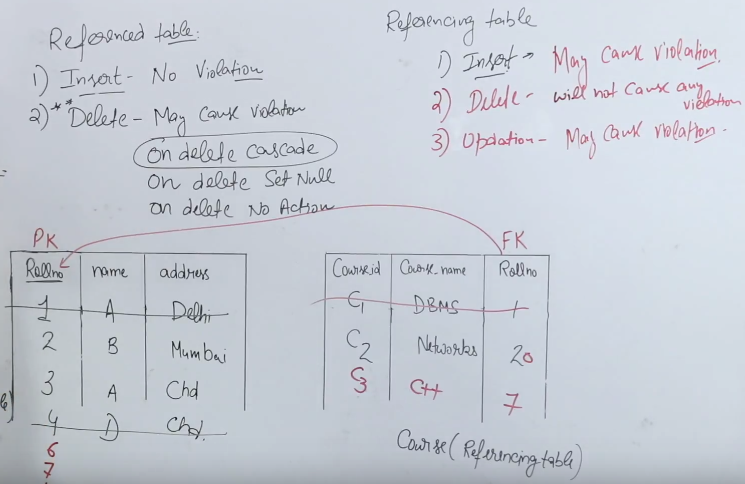 Referenced table:
1) Insert - No Violation
2) ** Delete - May Cause Violation
On delete Cascade
On delete Set Null
On delete No Action
Referencing table
1) Insert - May Cause Violation.
2) Delete - will not cause any violation
3) Updation - May Cause violation.
PK
Rollno name address
1 A Delhi
2 B Mumbai
3 A Chd
4 D Chd.
6
7
FK
Course.id Course_name Rollno
C1 DBMS 1
C2 Networks 20
C3 C++ 7
Course (Referencing table)